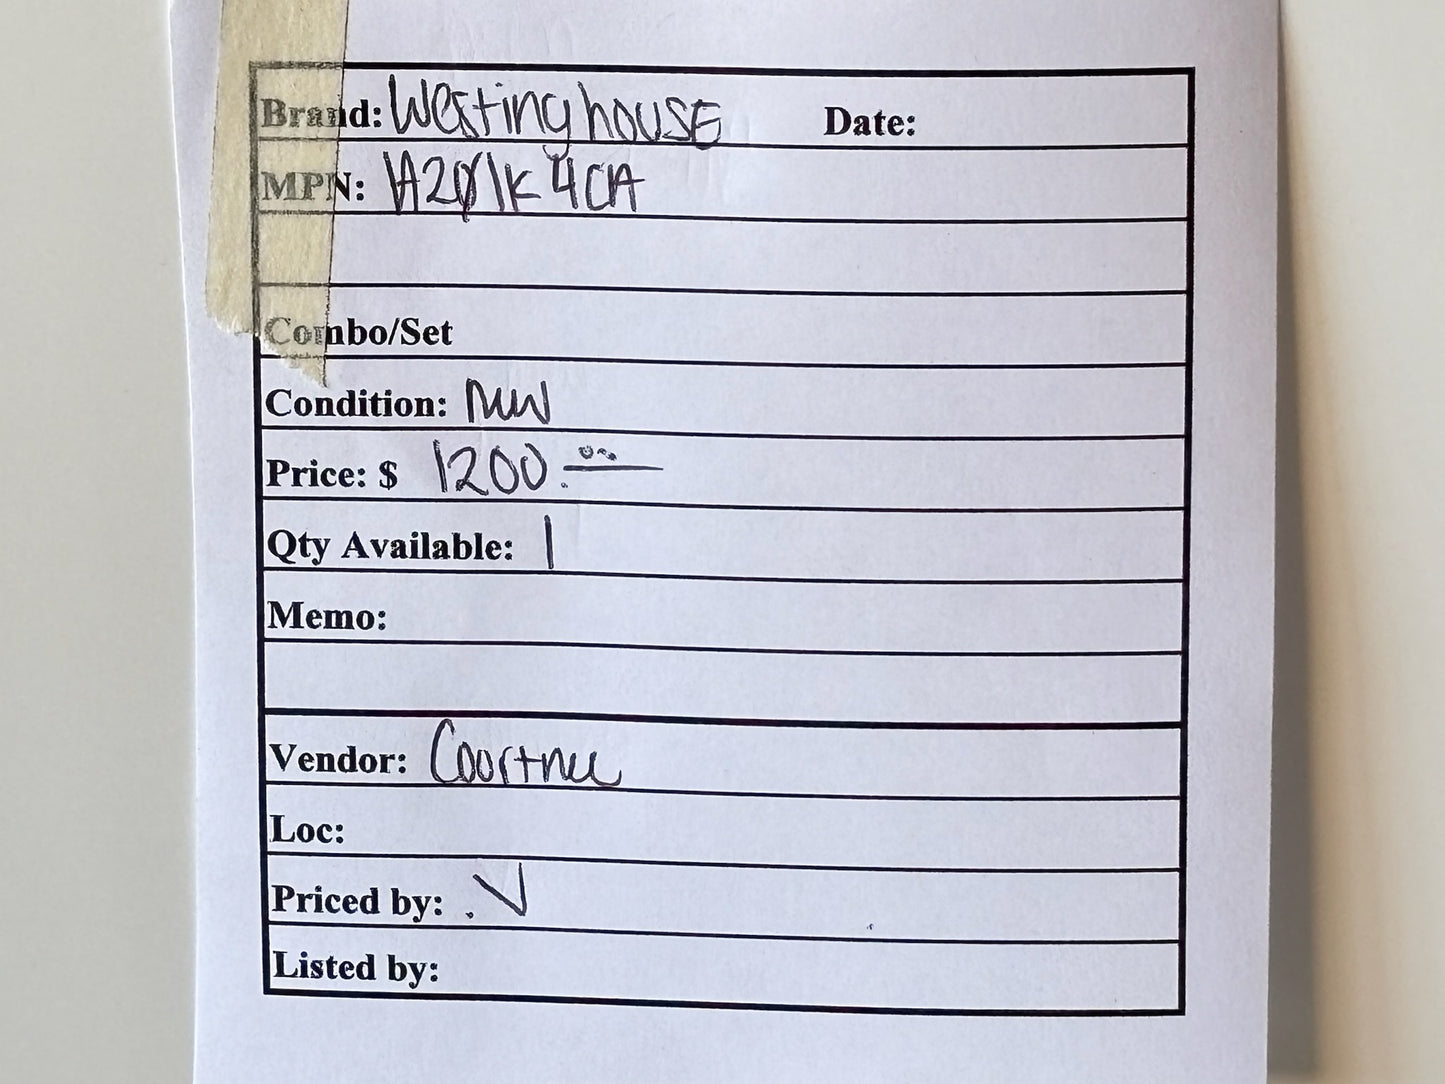 Brand: Westinghouse Date:
MPN: A201K4CA
Combo/Set
Condition: New
Price: $ 1200.00
Qty Available: 1
Memo:
Vendor: Coortnee
Loc:
Priced by: .V
Listed by: